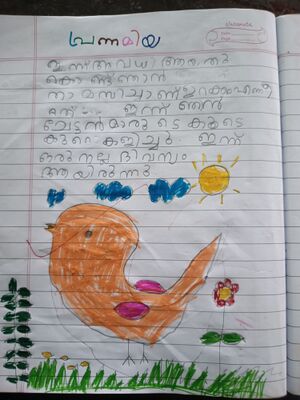 പ്രണമിയ
ഇന്ന് അവധി ആയതു
കൊണ്ട് ഞാൻ
താമസിച്ചാണ്
ഇന്ന് ഞാൻ
ചേട്ടൻമാരുടെ കൂടെ
കുറെ കളിച്ചു ഇന്ന്
ഒരു നല്ല ദിവസം
ആയിരുന്നു